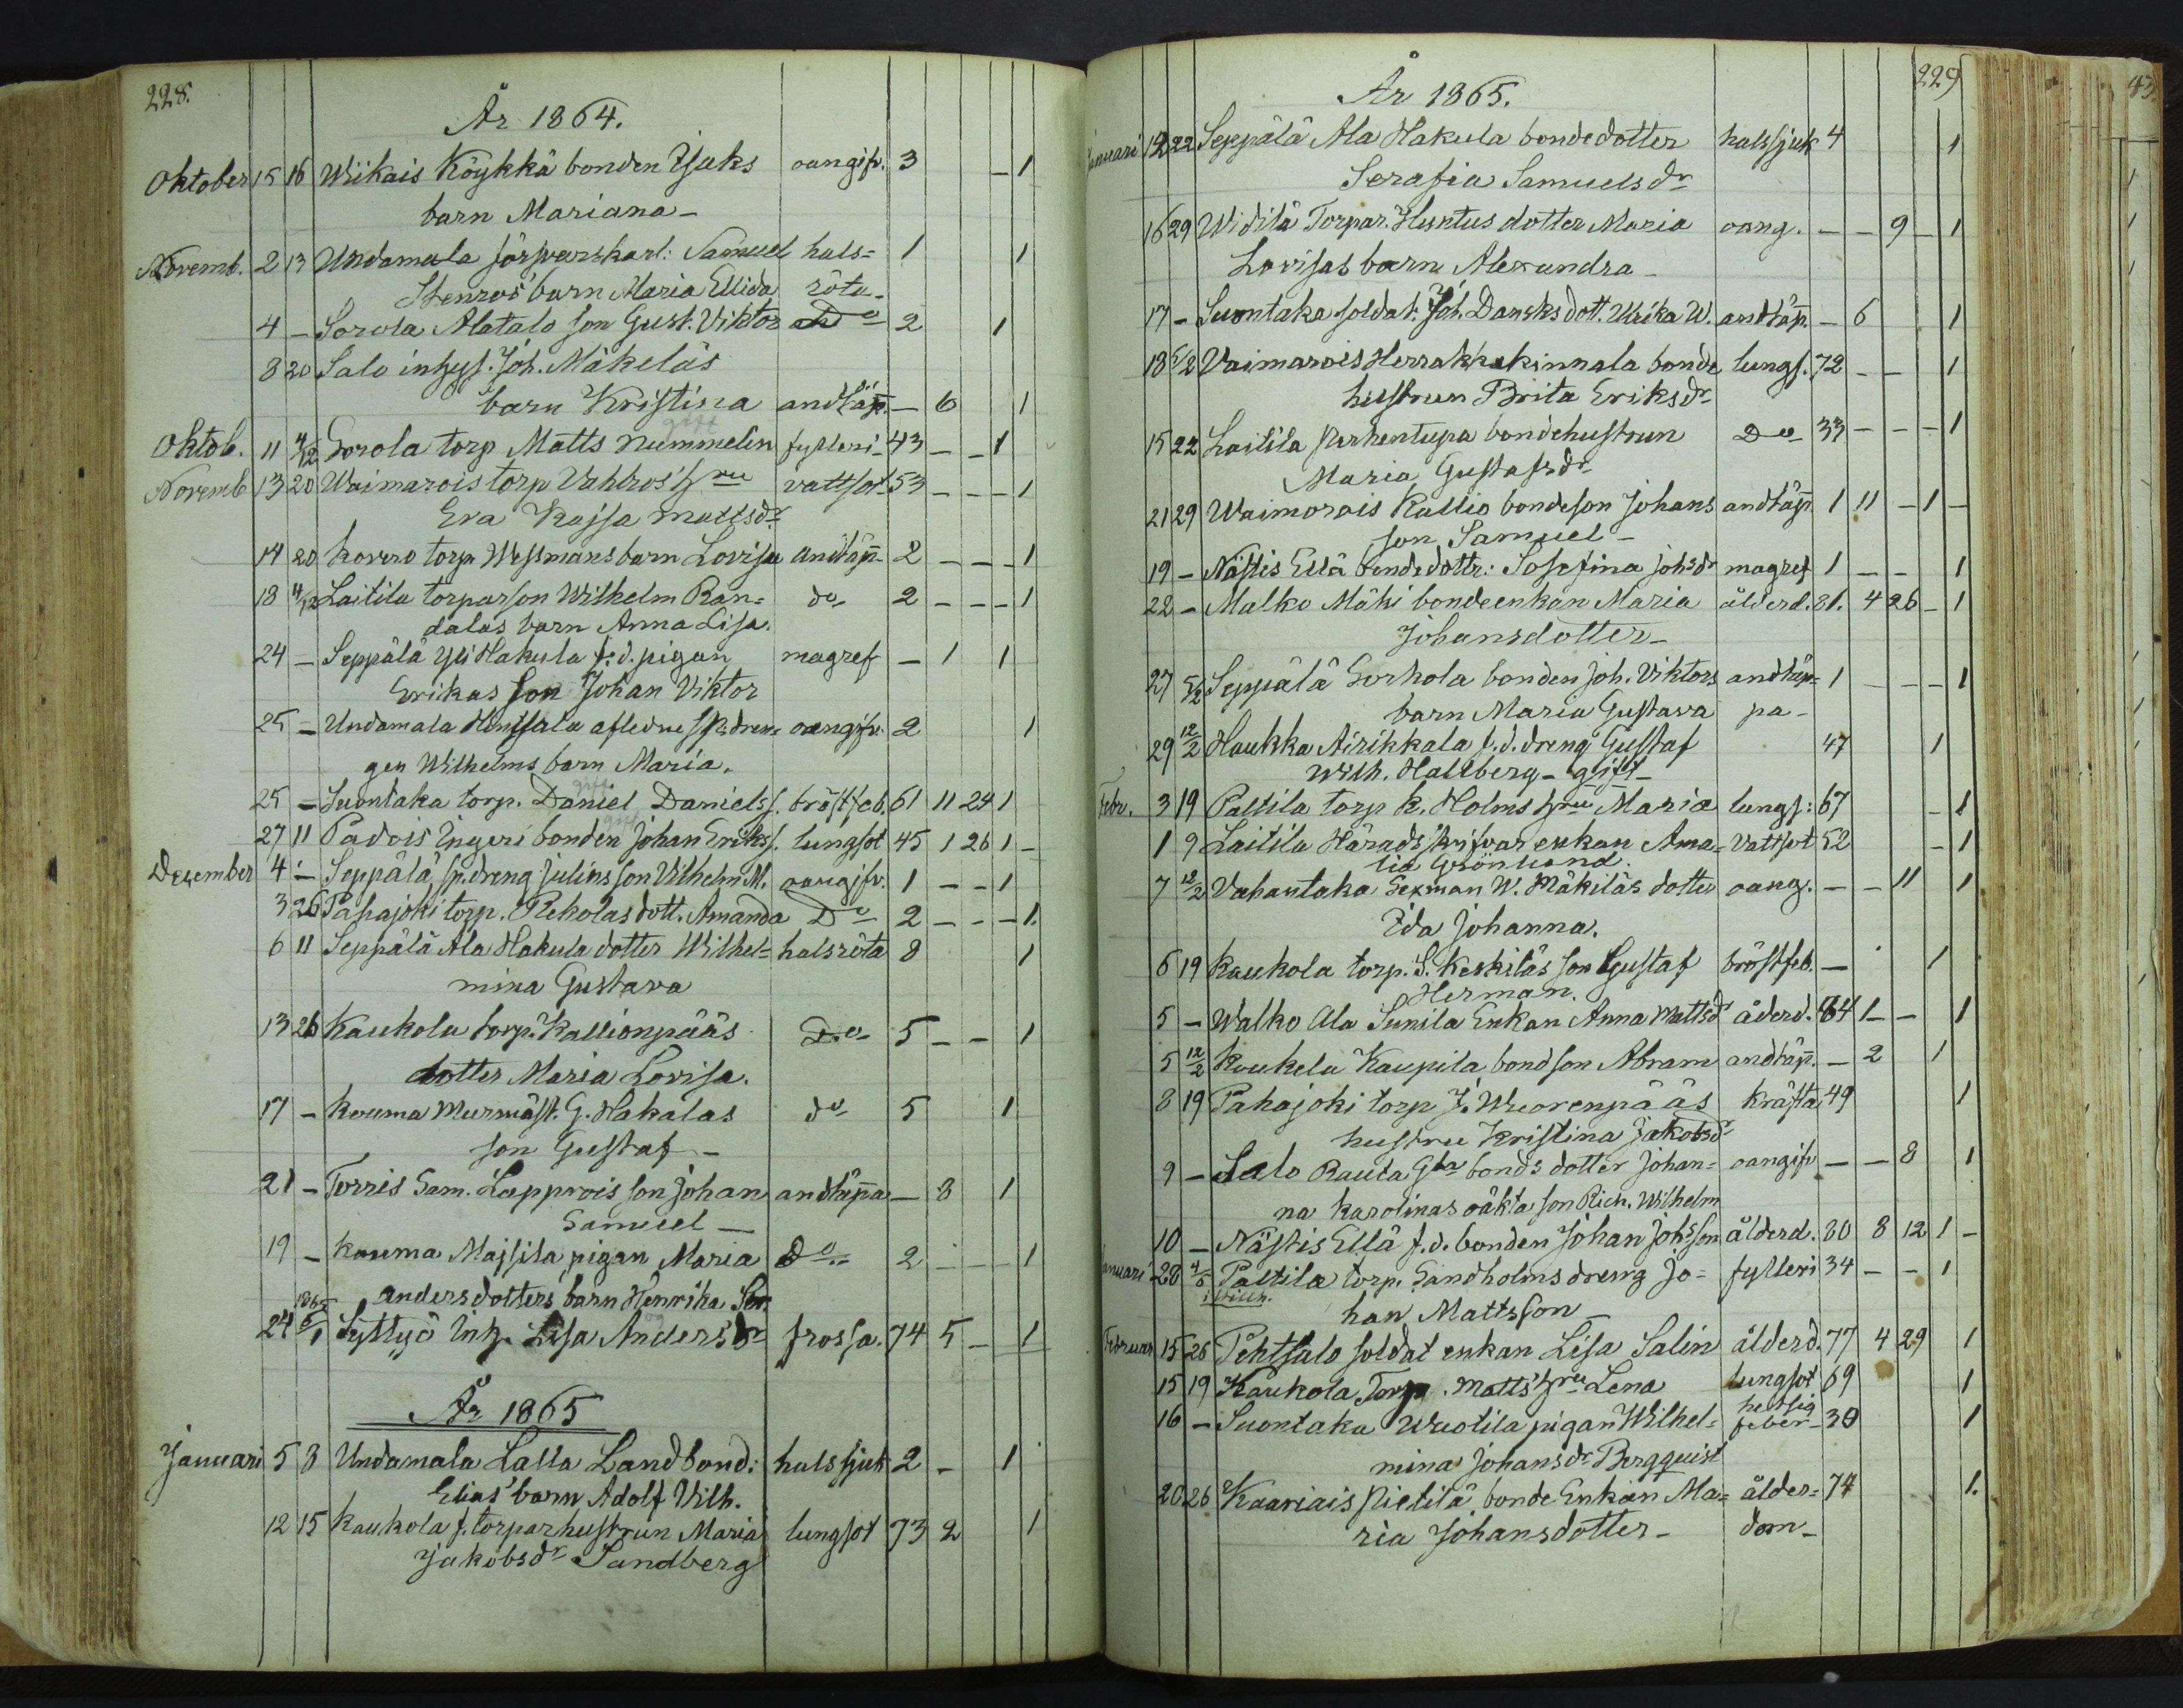 228.
År 1864.
Oktober 15 16 Wiikais Köykkä bonden Isaks oangifv. 3 – 1
barn Mariana –
Novemb. 2 13 Undamala förpvarskarl: Samuel hals= 1 1
Stenros' barn Maria Elida röta –
4 – Sorola Alatalo son Gust. Viktor Do 2 1
8 20 Salo inhys. Joh. Mäkeläs
barn Kristina andtäp. – 6 1
gift
Oktob. 11 4/12 Sorola torp Matts Nummelin fylleri – 43 – – 1
Novemb 13 20 Waimarois torp Vahlros' hru vattsot 53 – – – 1
Eva Kajsa Mattsdr
14 20 Kovero torp. Wessmans barn Lovisa andtäp – 2 – – – 1
18 4/12 Laitila torparson Wilhelm Ran= do 2 – – – 1
dalas barn Anna Lisa.
24 – Seppälä Yli Hakula f.d. pigan magref – 1 1
Erikas son Johan Viktor
25 – Undamala afledne dren= oangifv. 2 1
gen Wilhelms barn Maria.
gift
25 – Suontaka torp. Daniel Daniels s. bröstfeb. 61 11 24 1
gift
27 11 Padois Ingeri bonden Johan Eriks s. lungsot 45 1 26 1 –
December 4 – Seppälä sp. dreng Julins son Vilhelm M. oangifv. 1 – – 1
3 26 Pahajoki torp. Rekolas dott. Amanda Do 2 – – – 1.
6 11 Seppälä Ala Hakula dotter Wilhel= halsröta 8 1
mina Gustava
13 26 Kaukola torp. Kallionpääs Do 5 – – 1
dotter Maria Lovisa.
17 – Kouma Murmäst. G. Hakalas do 5 1
son Gustaf –
21 – Torris Sam. Lapprois son Johan andtäppa – 3 1
Samuel –
19 – Kouma Majsila pigan Maria Do 2 – – – 1
andersdotters barn Henrika
1865
24 8/1 Syttyö Inh. Lisa Andersdr frossa. 74 5 – 1
År 1865
Januari 5 8 Undamala Lalla Landbond: halssjuk 2 – 1
Elias' barn Adolf Vilh.
12 15 Kaukola f. torparhustrun Maria lungsot 73 2 1
Jakobsdr Sandberg
229
År 1865.
Januari 12 22 Seppälä Ala Hakula bondedotter halssjuk 4 1
Serafia Samuelsdr
16 29 Widilä Torpar. Huntus dotter Maria oang. – – 9 – 1
Lovisas barn Alexandra –
17 – Suontaka soldat. Joh. Dansks dott. Ulrika W. andtäp. – 6 1
18 5/2 Vaimarois Herrakkakinnala bonde lungs. 72 – – 1
hustrun Brita Eriksdr
15 22 Laitila Perhentupa bondehustrun Do 33 – – – 1
Maria Gustafsdr
21 29 Waimorois Kallio bondeson Johans andtäp 1 11 – 1 –
son Samuel –
19 – Nästis Ellä bondedottr: Josefina Johsdr magref 1 – – 1
22 – Malko Mäki bondeenkan Maria ålderd. 81. 4 26 – 1
Johansdotter –
27 5/2 Seppälä Sorkola bonden Joh. Viktors andtäp= 1 – – – 1
barn Maria Gustava pa –
29 12/2 Haukka Airikkala f.d. dreng Gustaf 47 1
Wilh. Hallberg – gift –
Febr. 3 19 Paltila torp K. Holms hru Maria lungs: 67 – 1
1 9 Laitila Häradsskrifvar enkan Ama= Vattsot 52 – 1
lia Grönlund.
7 12/2 Vahantaka Sexman W. Mäkiläs dotter oang. – – 11 1
Ida Johanna.
6 19 Kaukola torp. S. Keskiläs son Gustaf bröstfeb. – 1
Herman.
5 – Walko Ala Sunila Enkan Anna Mattsdr åderd. 64 1 – – 1
5 12/2 Koukela Kaupila bondson Abram andtäp. – 2 1
8 19 Pahajoki torp J. Wuorenpääs kräfta 49 1
hustru Kristina Jakobsdr
9 – Salo Rauta Gla bonds dotter Johan= oangifv – – 8 1
na Karolinas oäkta son Rich. Wilhelm
10 – Nästis Ellä f.d. bonden Johan Johsson ålderd. 80 8 12 1 –
Januari 28 4/5 Paltila torp. Sandholms dreng Jo= fylleri 34 – – 1
han Mattsson –
Februar 15 26 Pehtsalo soldat enkan Lisa Salin ålderd. 77 4 29 1
15 19 Kaukola Torp. Matts' hru Lena lungsot 69 1
hetsig
16 – Suontaka Wuolila pigan Wilhel= feber – 30 1
mina Johansdr Bergquist
20 26 Kaariais Pietilä bonde Enkan Ma= ålder= 74 1.
ria Johansdotter – dom –
43.